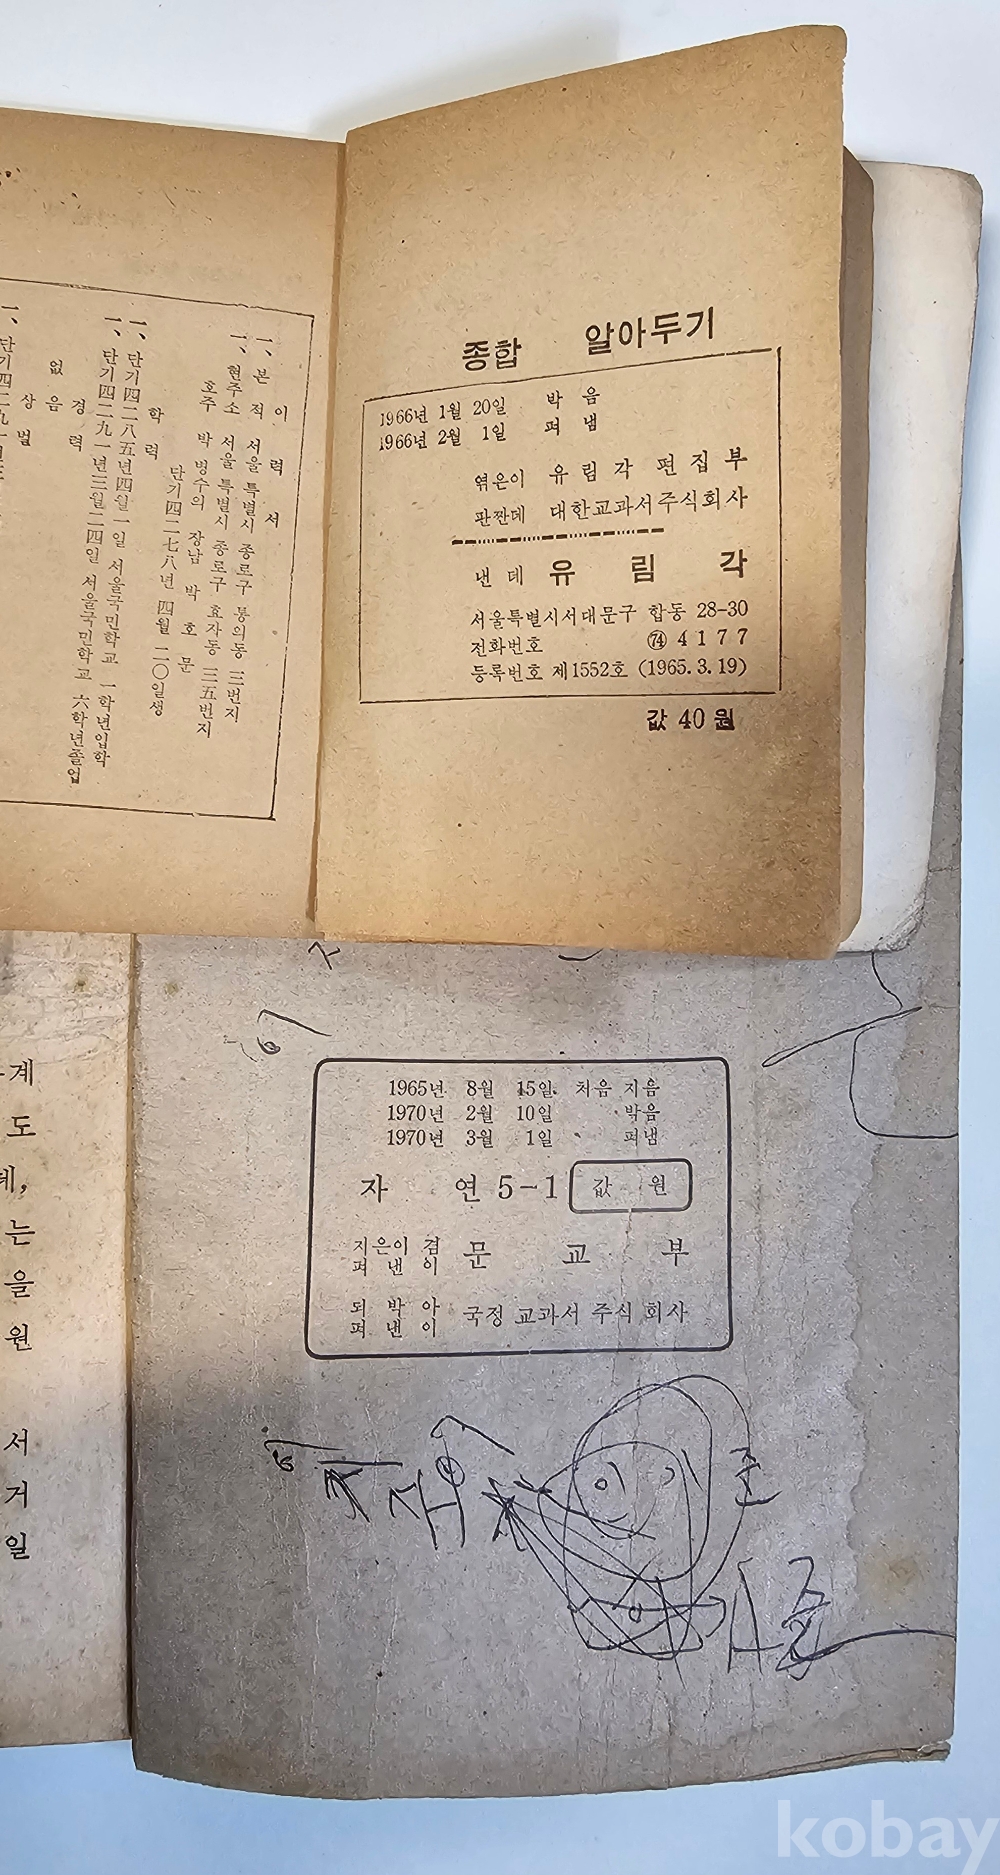 종합 알아두기
1966년 1월 20일 박음
1966년 2월 1일 펴냄
엮은이 유림각 편집부
판짠데 대한교과서주식회사
낸데 유림각
서울특별시서대문구 합동 28-30
전화번호 ㉔ 4177
등록번호 제1552호 (1965.3.19)
값 40 원
이력서
一、본적 서울특별시 종로구 통의동 三번지
一、현주소 서울특별시 종로구 효자동 三五번지
호주 박병수의 장남 박호문
단기四二七八년 四월 二〇일생
학력
一、단기四二八五년四월一일 서울국민학교 一학년입학
一、단기四二九一년三월二四일 서울국민학교 六학년졸업
경력
없음
상벌
계
도
데,
는
을
원
서
거
일
1965년 8월 15일 처음 지음
1970년 2월 10일 박음
1970년 3월 1일 펴냄
자연 5-1 값 원
지은이 겸
펴낸이 문교부
되박아
펴낸이 국정 교과서 주식 회사
준
준
kobay